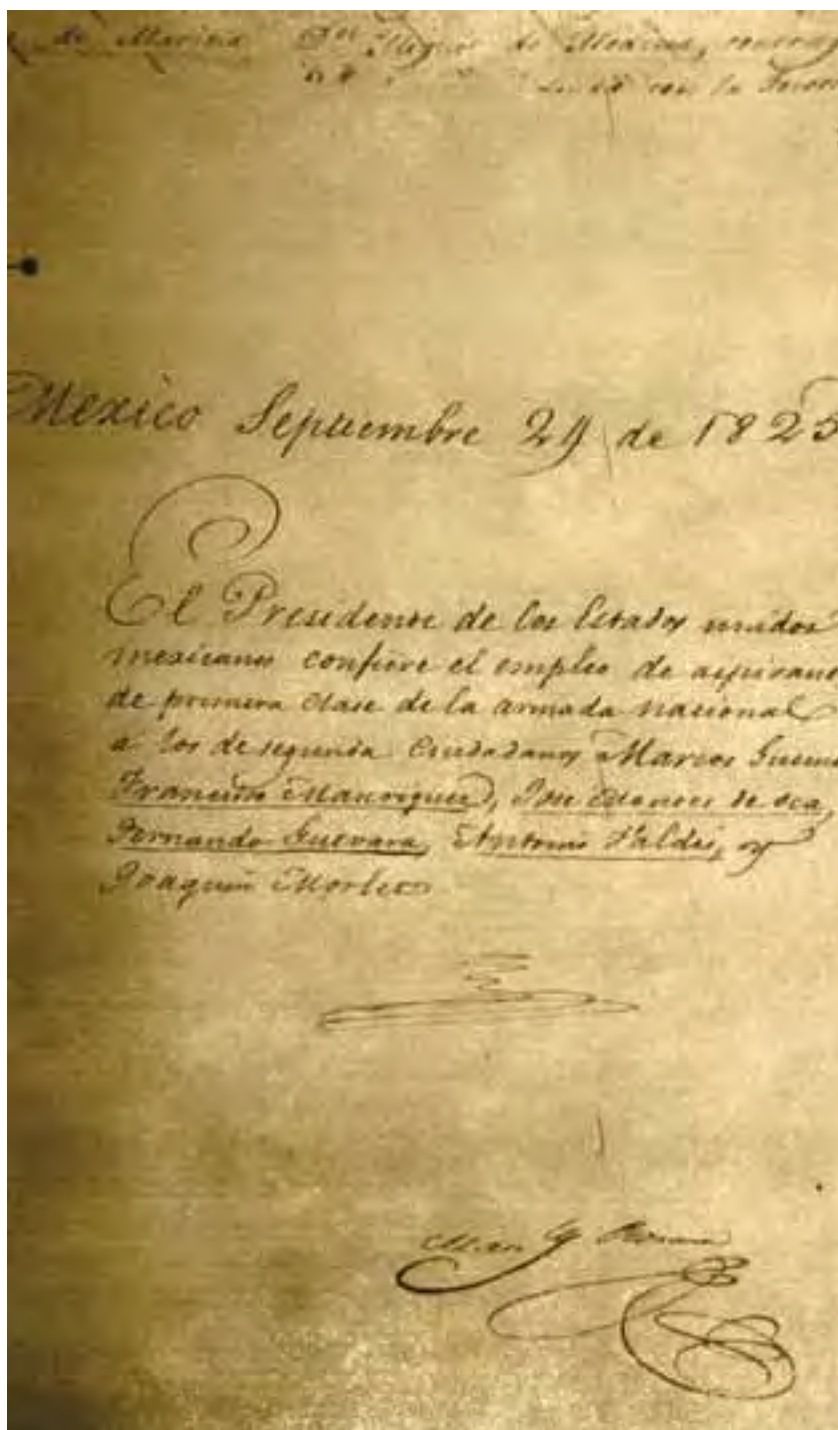 de Marina
de
con la
Mexico Septiembre 29 de 1825
El Presidente de los Estados unidos
mexicanos confiere el empleo de aspirant
de primera clase de la armada nacional
a los de segunda Ciudadanos Marcos
Francisco Manrique, Jose Montes de oca,
Fernando Guevara, Antonio Valdes, y
Joaquin Morlet